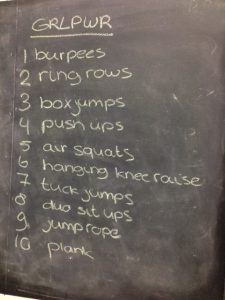 GRLPWR
1 burpees
2 ring rows
3 boxjumps
4 push ups
5 air squats
6 hanging knee raise
7 tuck jumps
8 duo sit ups
9 jump rope
10 plank